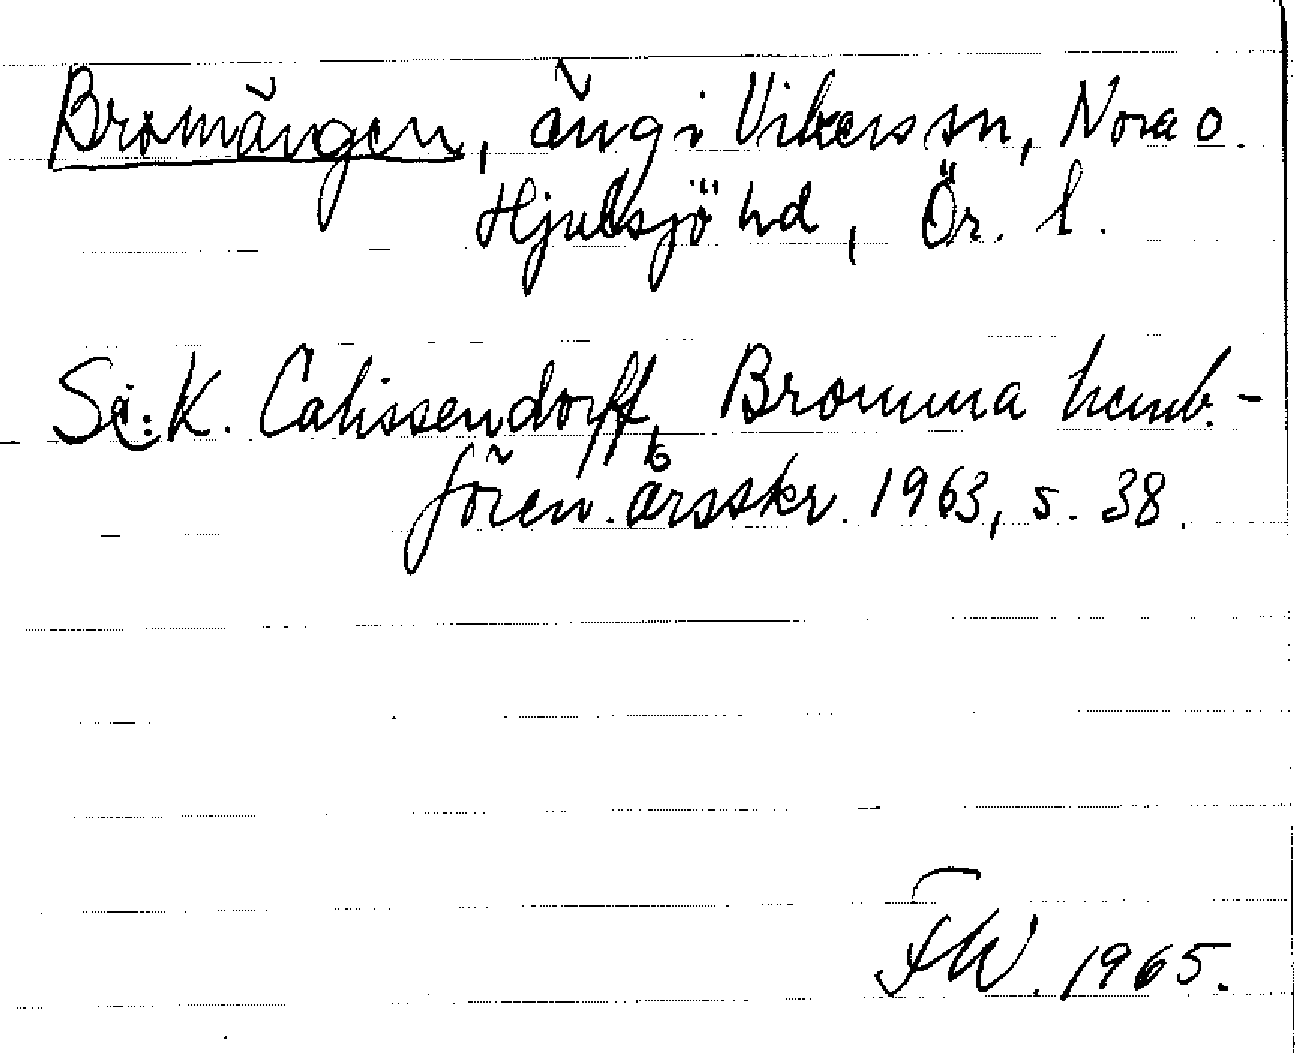 Bromängen, äng i Vikers sn, Nora o.
Hjulsjö hd, Ör. l.
Se: K. Calissendorff, Bromma hemb.-
fören. årsskr. 1963, s. 38.
FW. 1965.